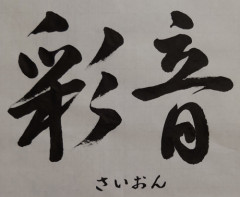 彩音
さいおん